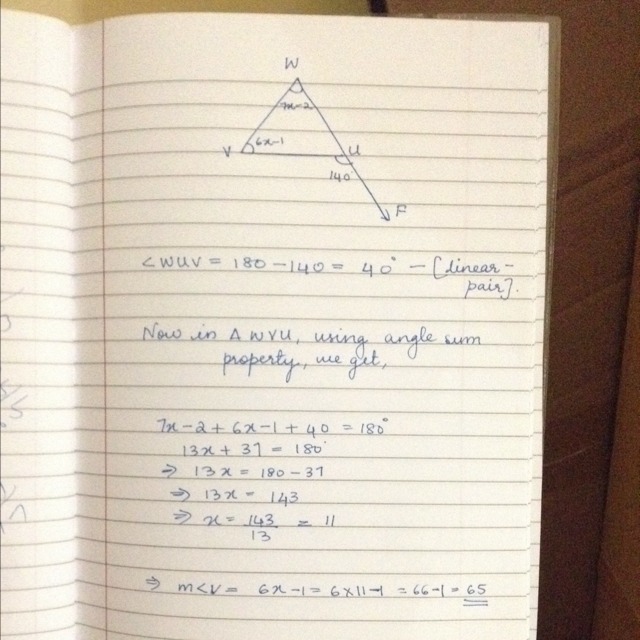 W
7x-2
V
6x-1
U
140
F
∠WUV = 180 - 140 = 40° - [linear-
pair].
Now in Δ WVU, using angle sum
property, we get,
7x-2 + 6x-1 + 40 = 180°
13x + 37 = 180°
⇒ 13x = 180 - 37
⇒ 13x = 143
⇒ x = 143/13 = 11
⇒ m<V = 6x-1 = 6x11-1 = 66-1 = 65